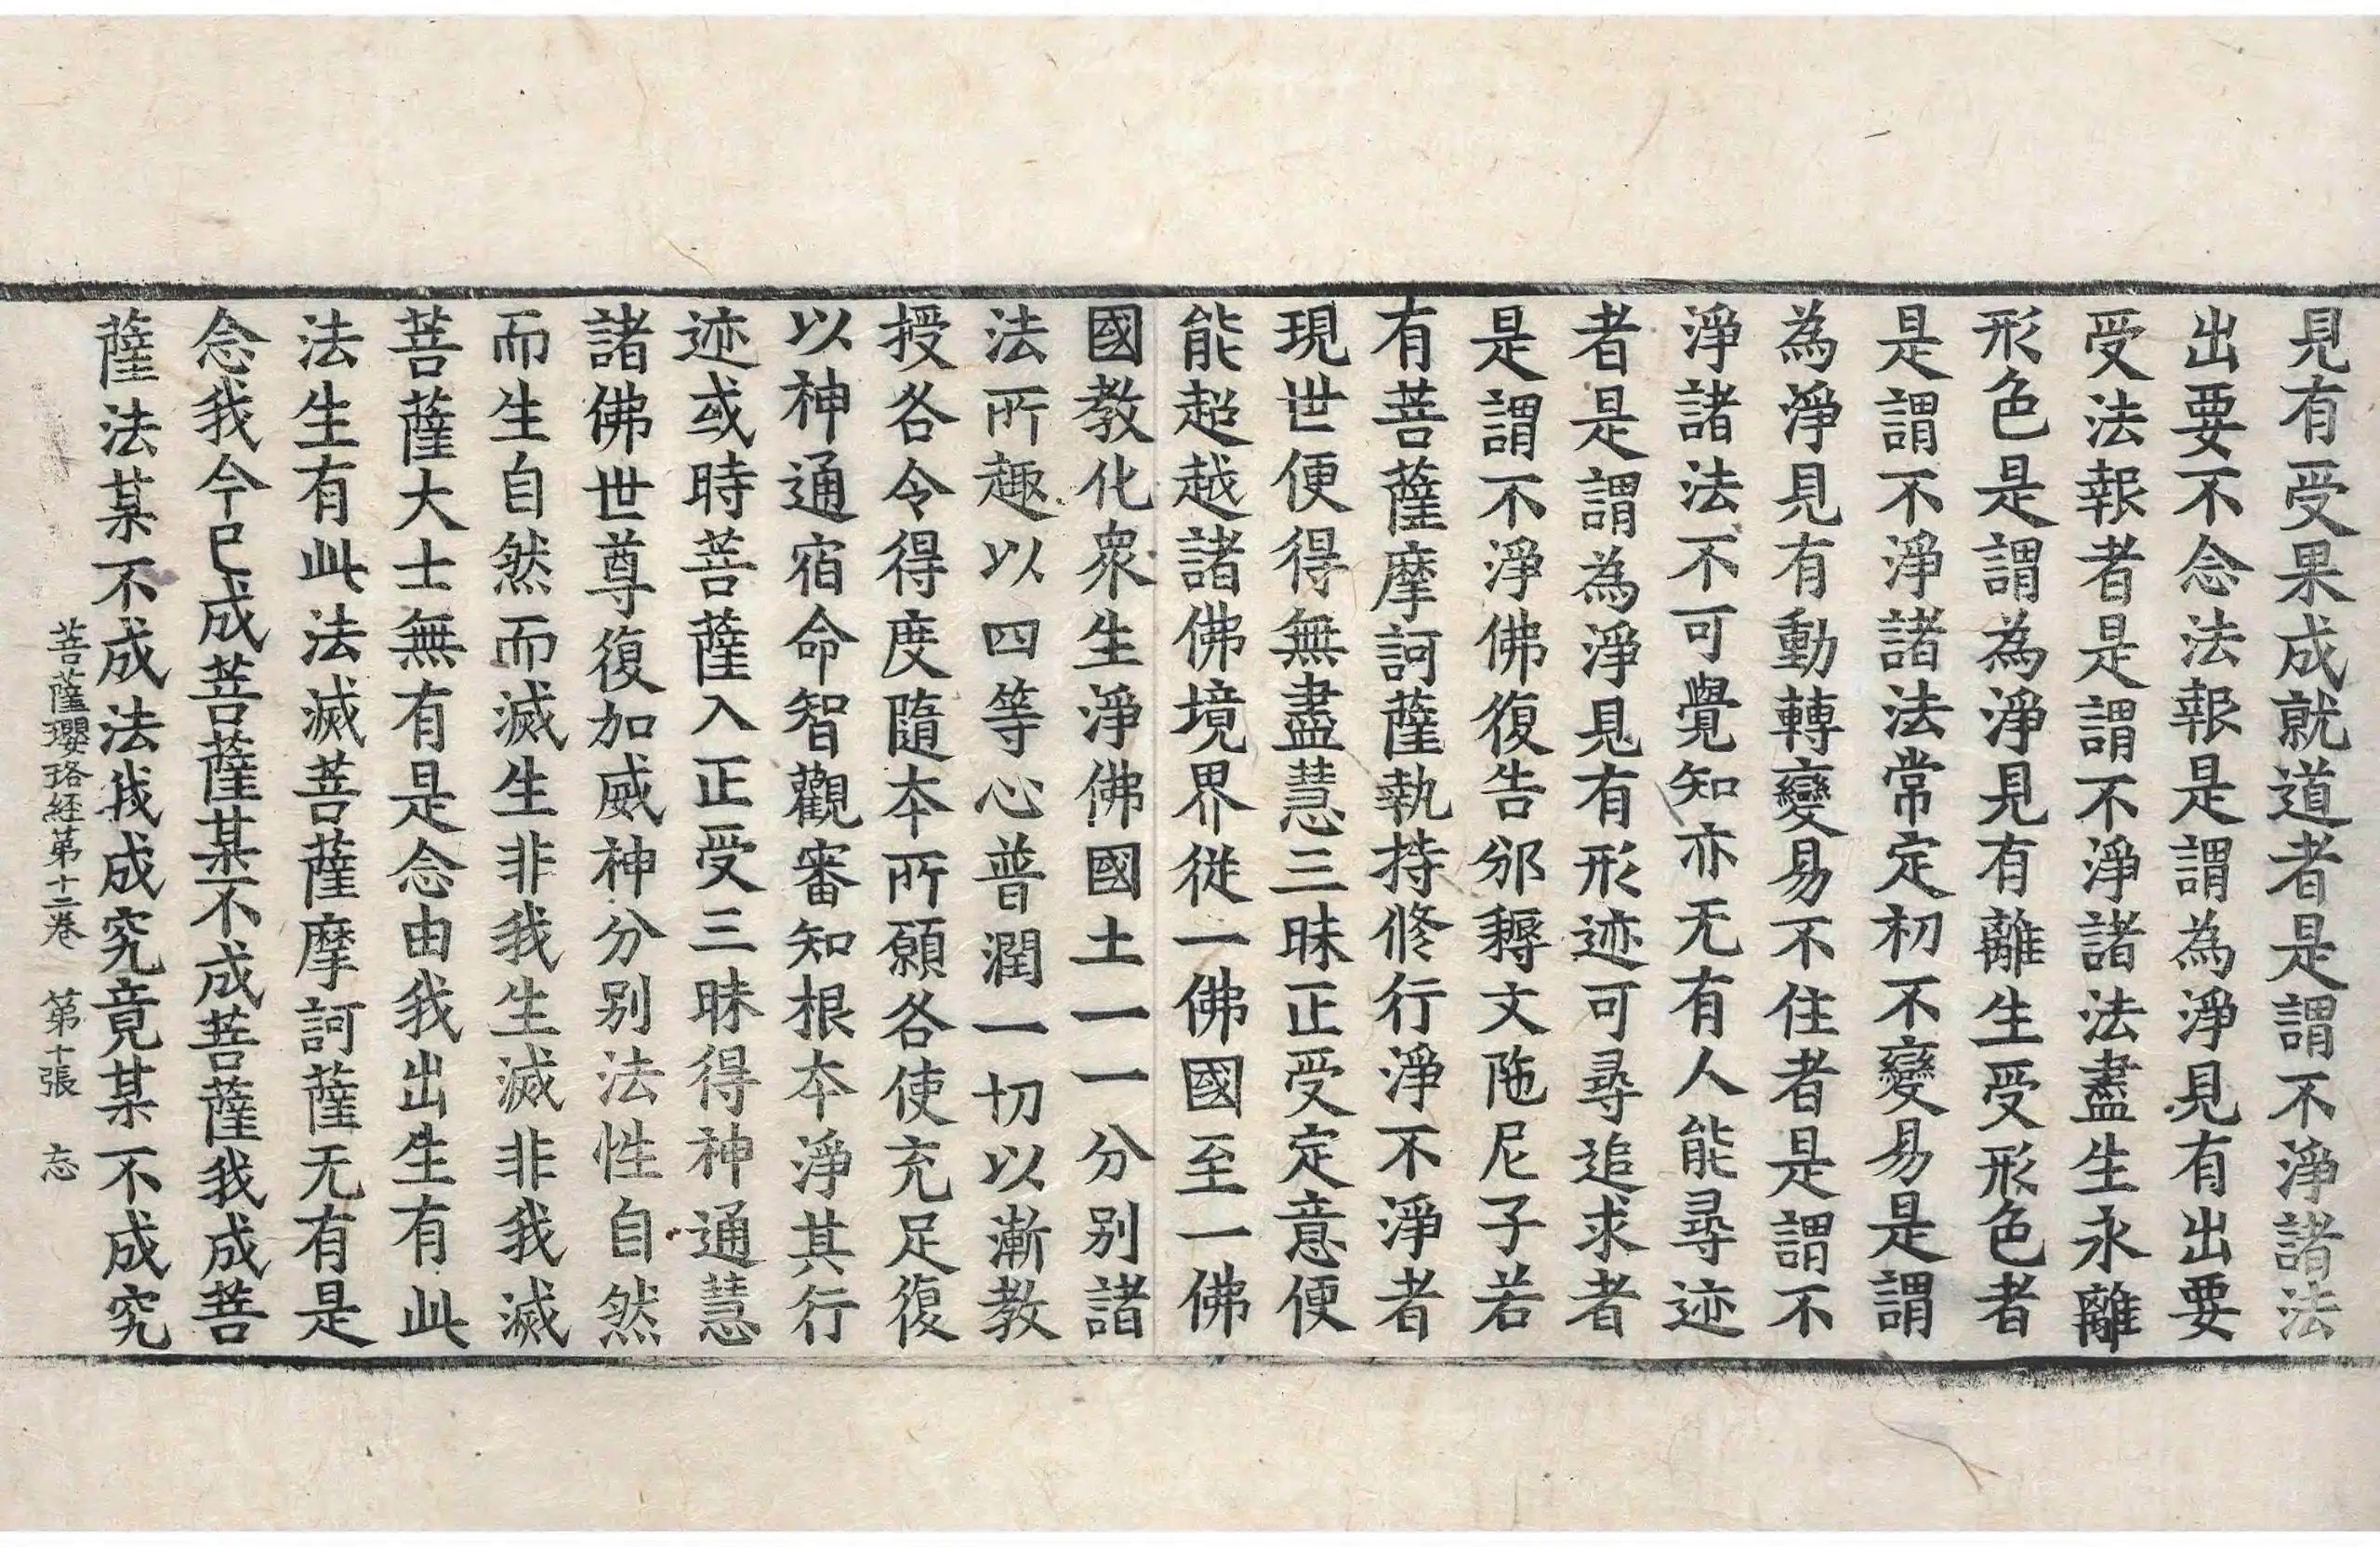 見有受果成就道者是謂不淨諸法
出要不念法報是謂為淨見有出要
受法報者是謂不淨諸法盡生永離
形色是謂為淨見有離生受形色者
是謂不淨諸法常定初不變易是謂
為淨見有動轉變易不住者是謂不
淨諸法不可覺知亦无有人能尋迹
者是謂為淨見有形迹可尋追求者
是謂不淨佛復告邠耨文陁尼子若
有菩薩摩訶薩執持修行淨不淨者
現世便得無盡慧三昧正受定意便
能超越諸佛境界從一佛國至一佛
國教化衆生淨佛國土一一分别諸
法所趣以四等心普潤一切以漸教
授各令得度隨本所願各使充足復
以神通宿命智觀審知根本淨其行
迹或時菩薩入正受三昧得神通慧
諸佛世尊復加威神分别法性自然
而生自然而滅生非我生滅非我滅
菩薩大士無有是念由我出生有此
法生有此法滅菩薩摩訶薩无有是
念我今已成菩薩某不成菩薩我成菩
薩法某不成法我成究竟某不成究
菩薩瓔珞經第十二卷 第十張 忘